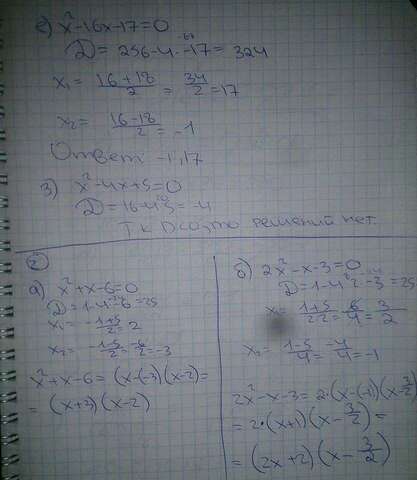 е) x²-16x-17=0
D = 256-4·-17= 324
x₁= 16+18/2 = 34/2 =17
x₂= 16-18/2 = -1
Ответ: -1; 17
з) x²-4x+5=0
D = 16-4·5= -4
Т.к D<0, то решений нет.
②
а) x²+x-6=0
D= 1-4·-6=25
x₁= -1+5/2= 2
x₂= -1-5/2= -6/2= -3
x²+x-6= (x-(-3)(x-2)=
= (x+3)(x-2)
б) 2x²-x-3=0
D= 1-4·2·-3=25
x₁= 1+5/2·2= 6/4= 3/2
x₂= 1-5/4= -4/4= -1
2x²-x-3= 2·(x-(-1)(x-3/2)
= 2·(x+1)(x-3/2)=
= (2x+2)(x-3/2)